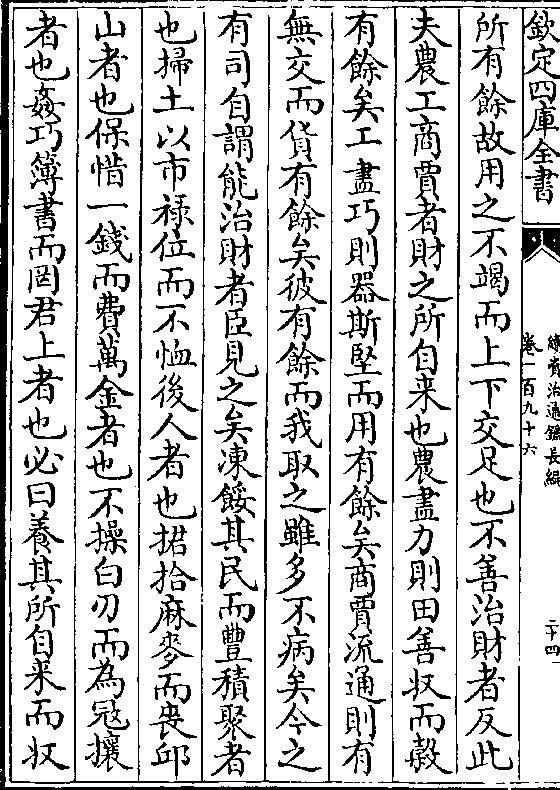 欽定四庫全書
續資治通鑑長編
卷一百九十六
二十四
所有餘故用之不竭而上下交足也不善治財者反此
夫農工商賈者財之所自来也農盡力則田善収而榖
有餘矣工盡巧則器斯堅而用有餘矣商賈流通則有
無交而貨有餘矣彼有餘而我取之雖多不病矣今之
有司自謂能治財者臣見之矣凍餒其民而豐積聚者
也掃土以市禄位而不恤後人者也捃拾麻麥而喪邱
山者也保惜一錢而費萬金者也不操白刃而為冦攘
者也姦巧簿書而罔君上者也必曰養其所自来而収